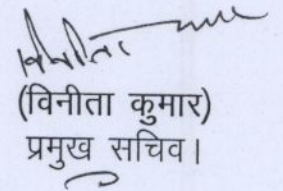 विनीता
(विनीता कुमार)
प्रमुख सचिव।